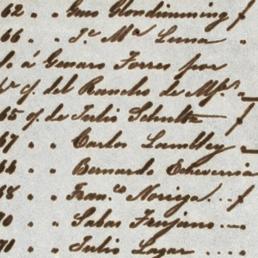 62 " " Gmo Glendinning f
66 " " J.ᵉ Mᵃ Luna "
f. á Genaro Torres por
c/. del Rancho de
65 c/. de Julio Schultz f
67 " " Carlos Lambley "
64 " " Bernardo Echeverria
68 " " Fran.ᶜᵒ Noriega...f
70 " " Salas Trujano...
71 " " Julio Lazar ....